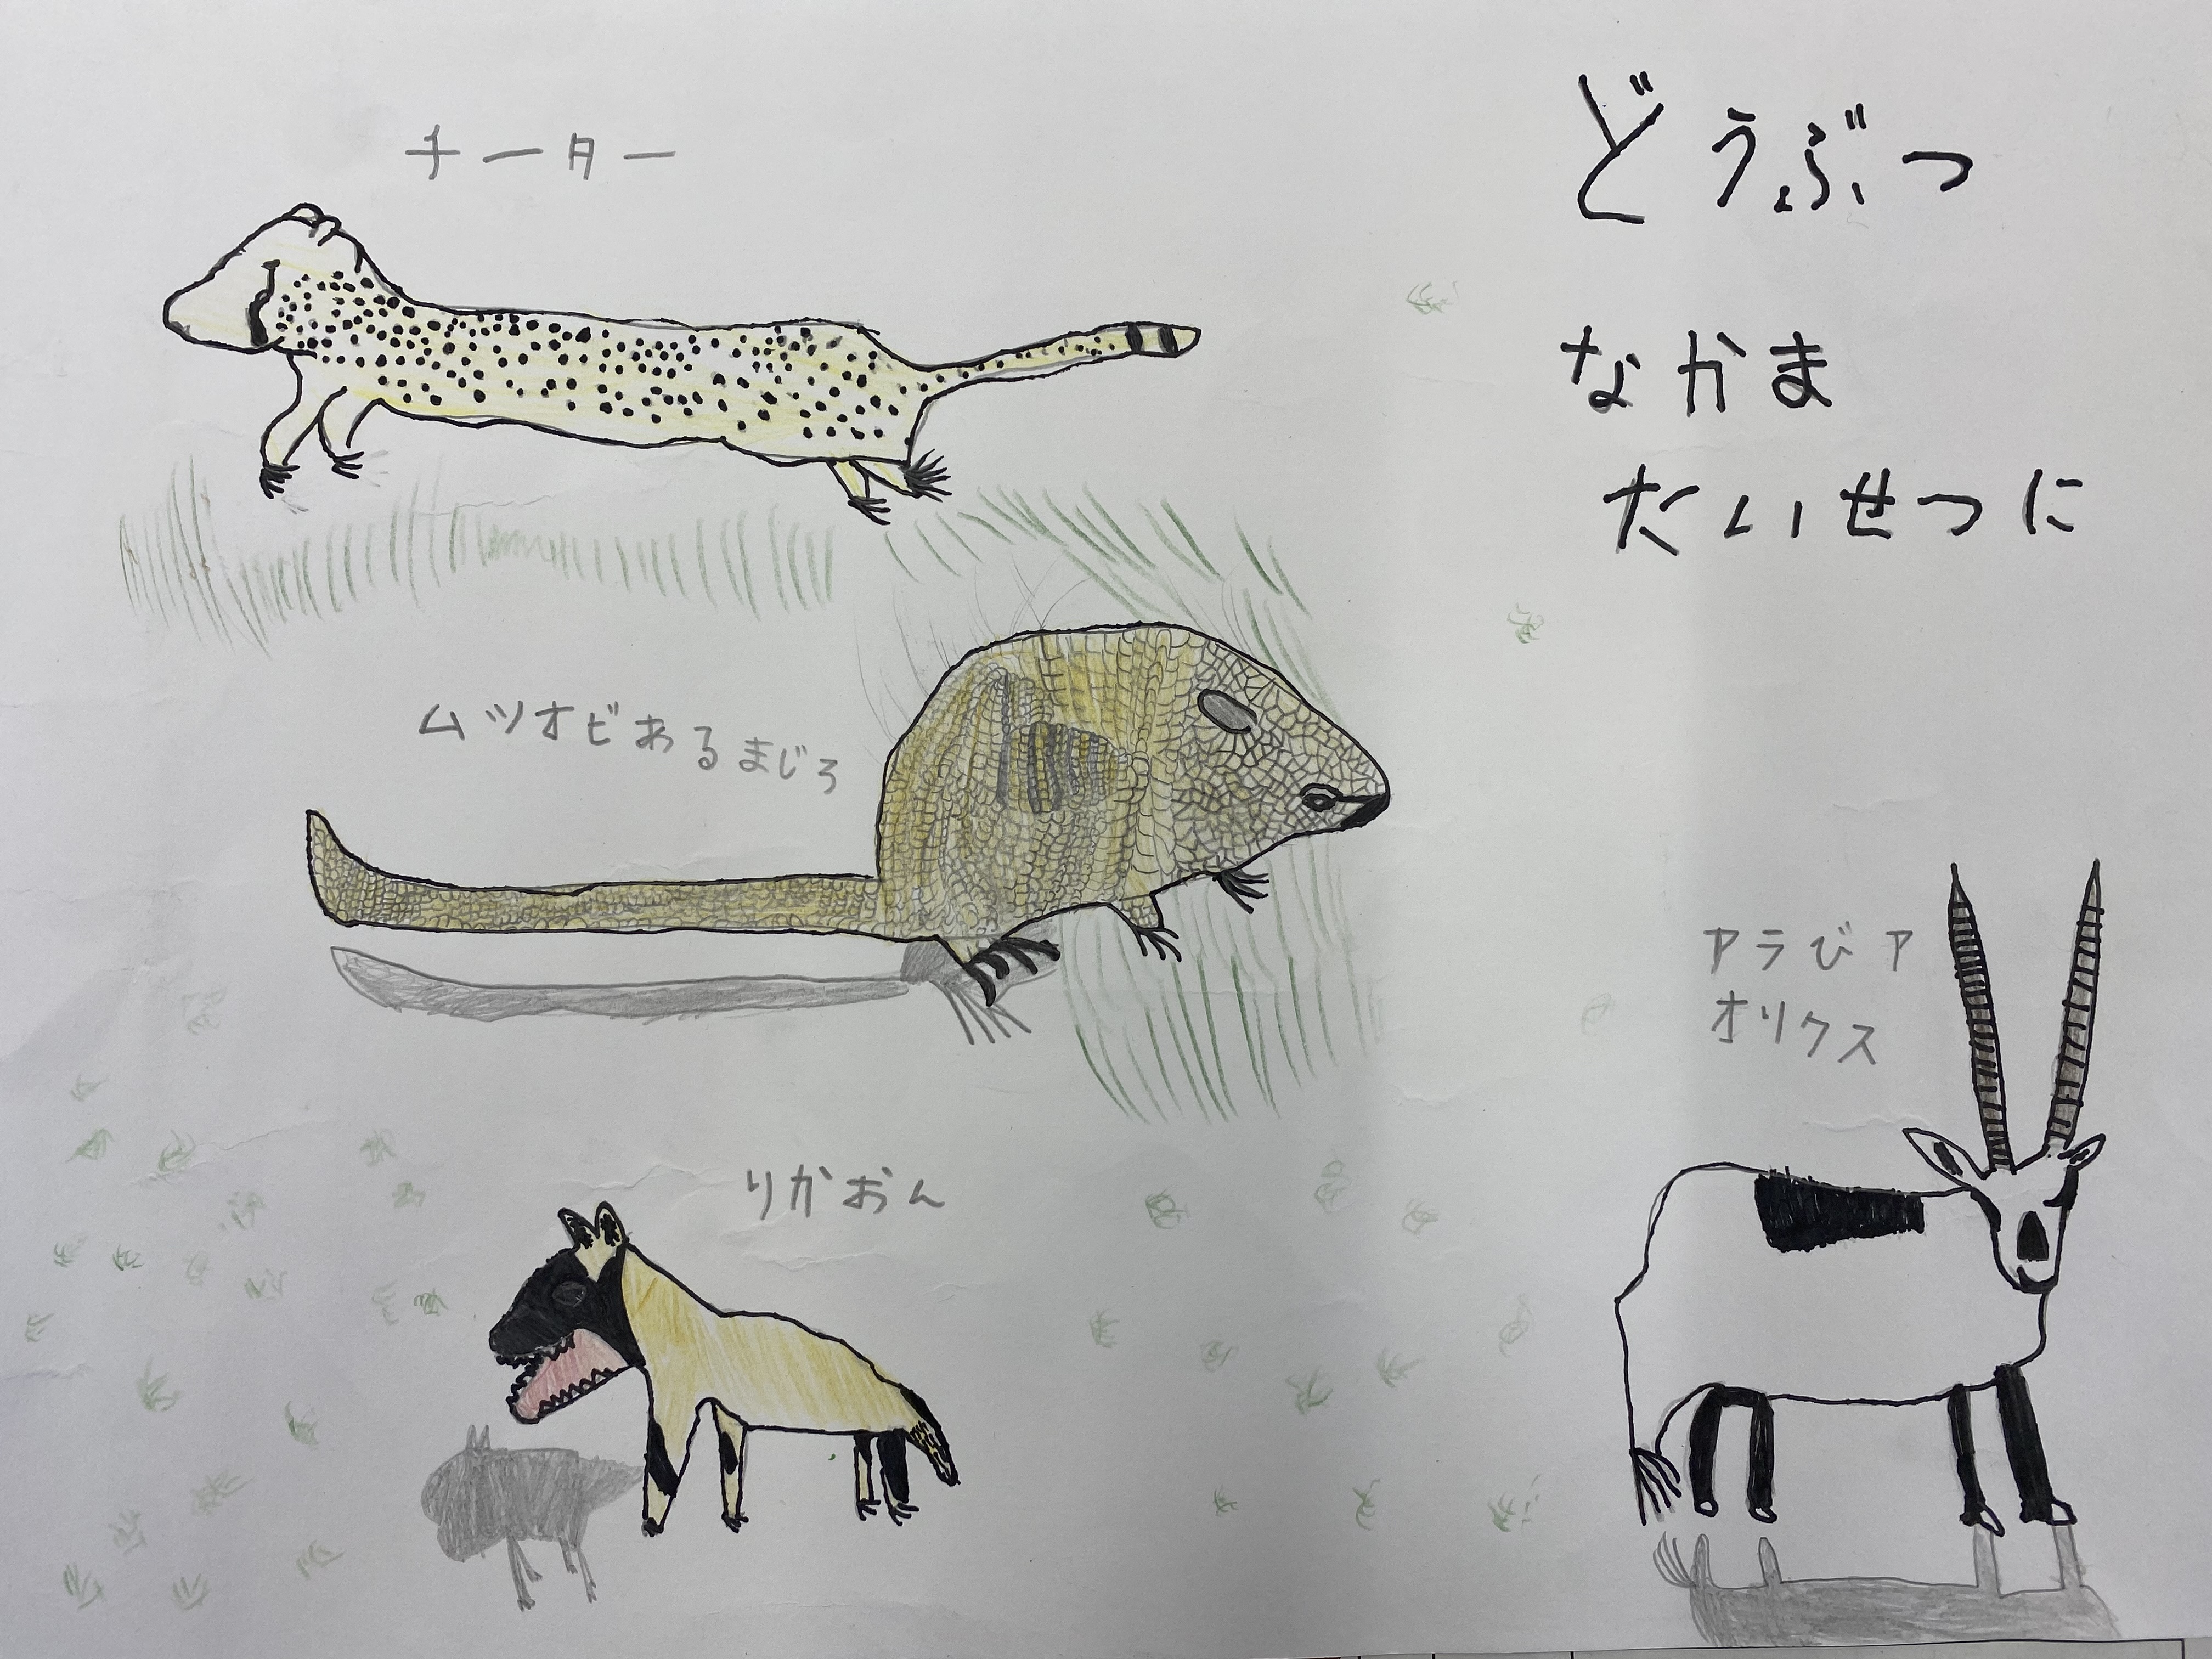 どうぶつ
なかま
たいせつに
チーター
ムツオビあるまじろ
アラびア
オリクス
りかおん